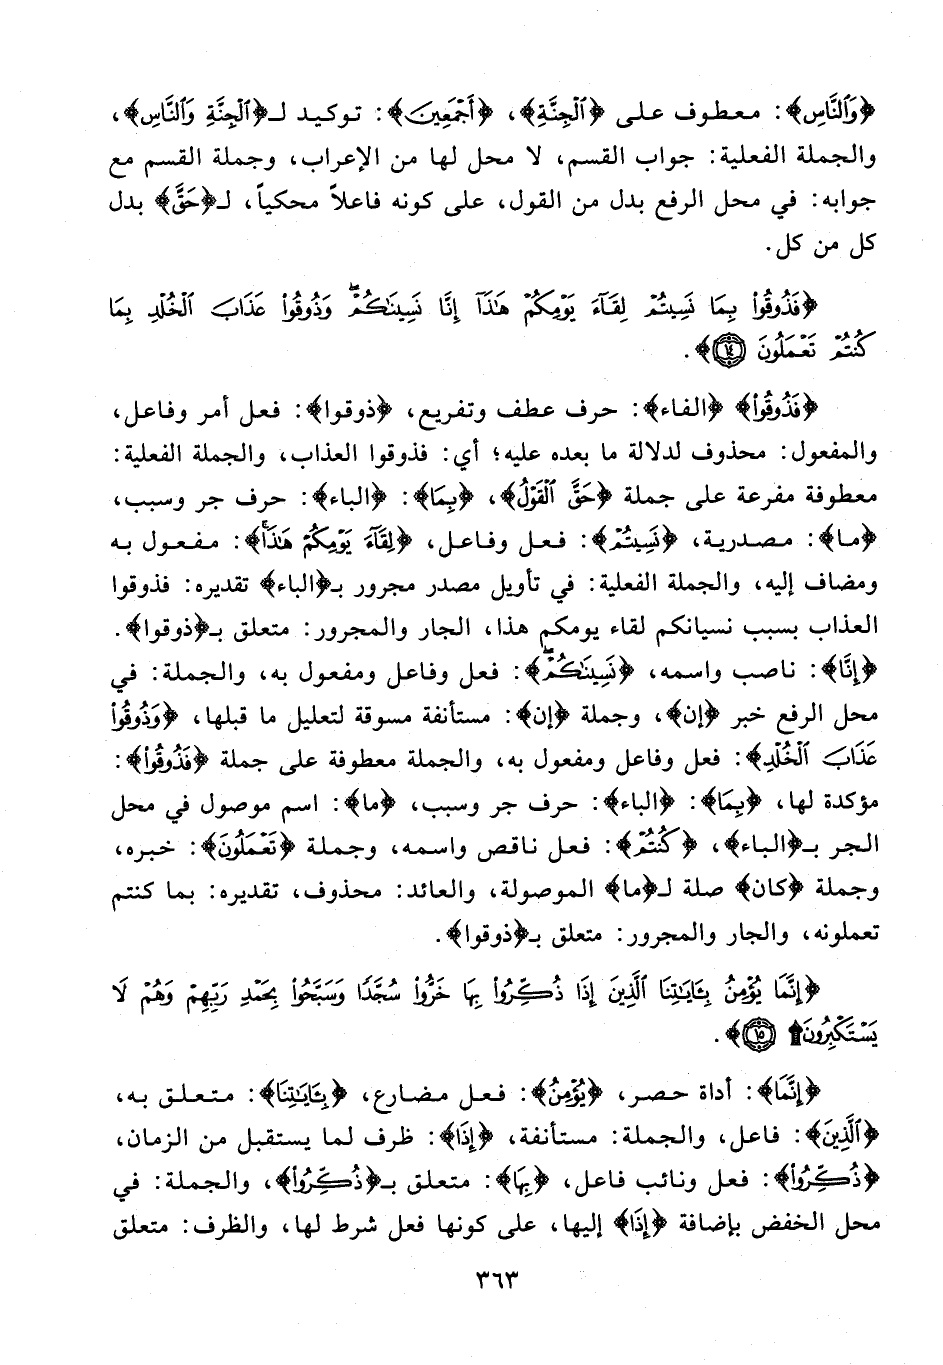 ﴿وَٱلنَّاسِ﴾: معطوف على ﴿ٱلْجِنَّةِ﴾، ﴿أَجْمَعِينَ﴾: توكيد لـ﴿ٱلْجِنَّةِ وَٱلنَّاسِ﴾،
والجملة الفعلية: جواب القسم، لا محل لها من الإعراب، وجملة القسم مع
جوابه: في محل الرفع بدل من القول، على كونه فاعلاً محكياً، لـ﴿حَقَّ﴾ بدل
كل من كل.
﴿فَذُوقُواْ بِمَا نَسِيتُمْ لِقَآءَ يَوْمِكُمْ هَـٰذَآ إِنَّا نَسِينَـٰكُمْۖ وَذُوقُواْ عَذَابَ ٱلْخُلْدِ بِمَا
كُنتُمْ تَعْمَلُونَ ١٤﴾.
﴿فَذُوقُواْ﴾ ﴿الفاء﴾: حرف عطف وتفريع، ﴿ذوقوا﴾: فعل أمر وفاعل،
والمفعول: محذوف لدلالة ما بعده عليه؛ أي: فذوقوا العذاب، والجملة الفعلية:
معطوفة مفرعة على جملة ﴿حَقَّ ٱلْقَوْلُ﴾، ﴿بِمَا﴾: ﴿الباء﴾: حرف جر وسبب،
﴿ما﴾: مصدرية، ﴿نَسِيتُمْ﴾: فعل وفاعل، ﴿لِقَآءَ يَوْمِكُمْ هَـٰذَا﴾: مفعول به
ومضاف إليه، والجملة الفعلية: في تأويل مصدر مجرور بـ﴿الباء﴾ تقديره: فذوقوا
العذاب بسبب نسيانكم لقاء يومكم هذا، الجار والمجرور: متعلق بـ﴿ذوقوا﴾.
﴿إِنَّا﴾: ناصب واسمه، ﴿نَسِينَـٰكُمْۖ﴾: فعل وفاعل ومفعول به، والجملة: في
محل الرفع خبر ﴿إن﴾، وجملة ﴿إن﴾: مستأنفة مسوقة لتعليل ما قبلها، ﴿وَذُوقُواْ
عَذَابَ ٱلْخُلْدِ﴾: فعل وفاعل ومفعول به، والجملة معطوفة على جملة ﴿فَذُوقُواْ﴾:
مؤكدة لها، ﴿بِمَا﴾: ﴿الباء﴾: حرف جر وسبب، ﴿ما﴾: اسم موصول في محل
الجر بـ﴿الباء﴾، ﴿كُنتُمْ﴾: فعل ناقص واسمه، وجملة ﴿تَعْمَلُونَ﴾: خبره،
وجملة ﴿كان﴾ صلة لـ﴿ما﴾ الموصولة، والعائد: محذوف، تقديره: بما كنتم
تعملونه، والجار والمجرور: متعلق بـ﴿ذوقوا﴾.
﴿إِنَّمَا يُؤْمِنُ بِـَٔايَـٰتِنَا ٱلَّذِينَ إِذَا ذُكِّرُواْ بِهَا خَرُّواْ سُجَّدًا وَسَبَّحُواْ بِحَمْدِ رَبِّهِمْ وَهُمْ لَا
يَسْتَكْبِرُونَ۩ ١٥﴾.
﴿إِنَّمَا﴾: أداة حصر، ﴿يُؤْمِنُ﴾: فعل مضارع، ﴿بِـَٔايَـٰتِنَا﴾: متعلق به،
﴿ٱلَّذِينَ﴾: فاعل، والجملة: مستأنفة، ﴿إِذَا﴾: ظرف لما يستقبل من الزمان،
﴿ذُكِّرُواْ﴾: فعل ونائب فاعل، ﴿بِهَا﴾: متعلق بـ﴿ذُكِّرُواْ﴾، والجملة: في
محل الخفض بإضافة ﴿إِذَا﴾ إليها، على كونها فعل شرط لها، والظرف: متعلق
٣٦٣